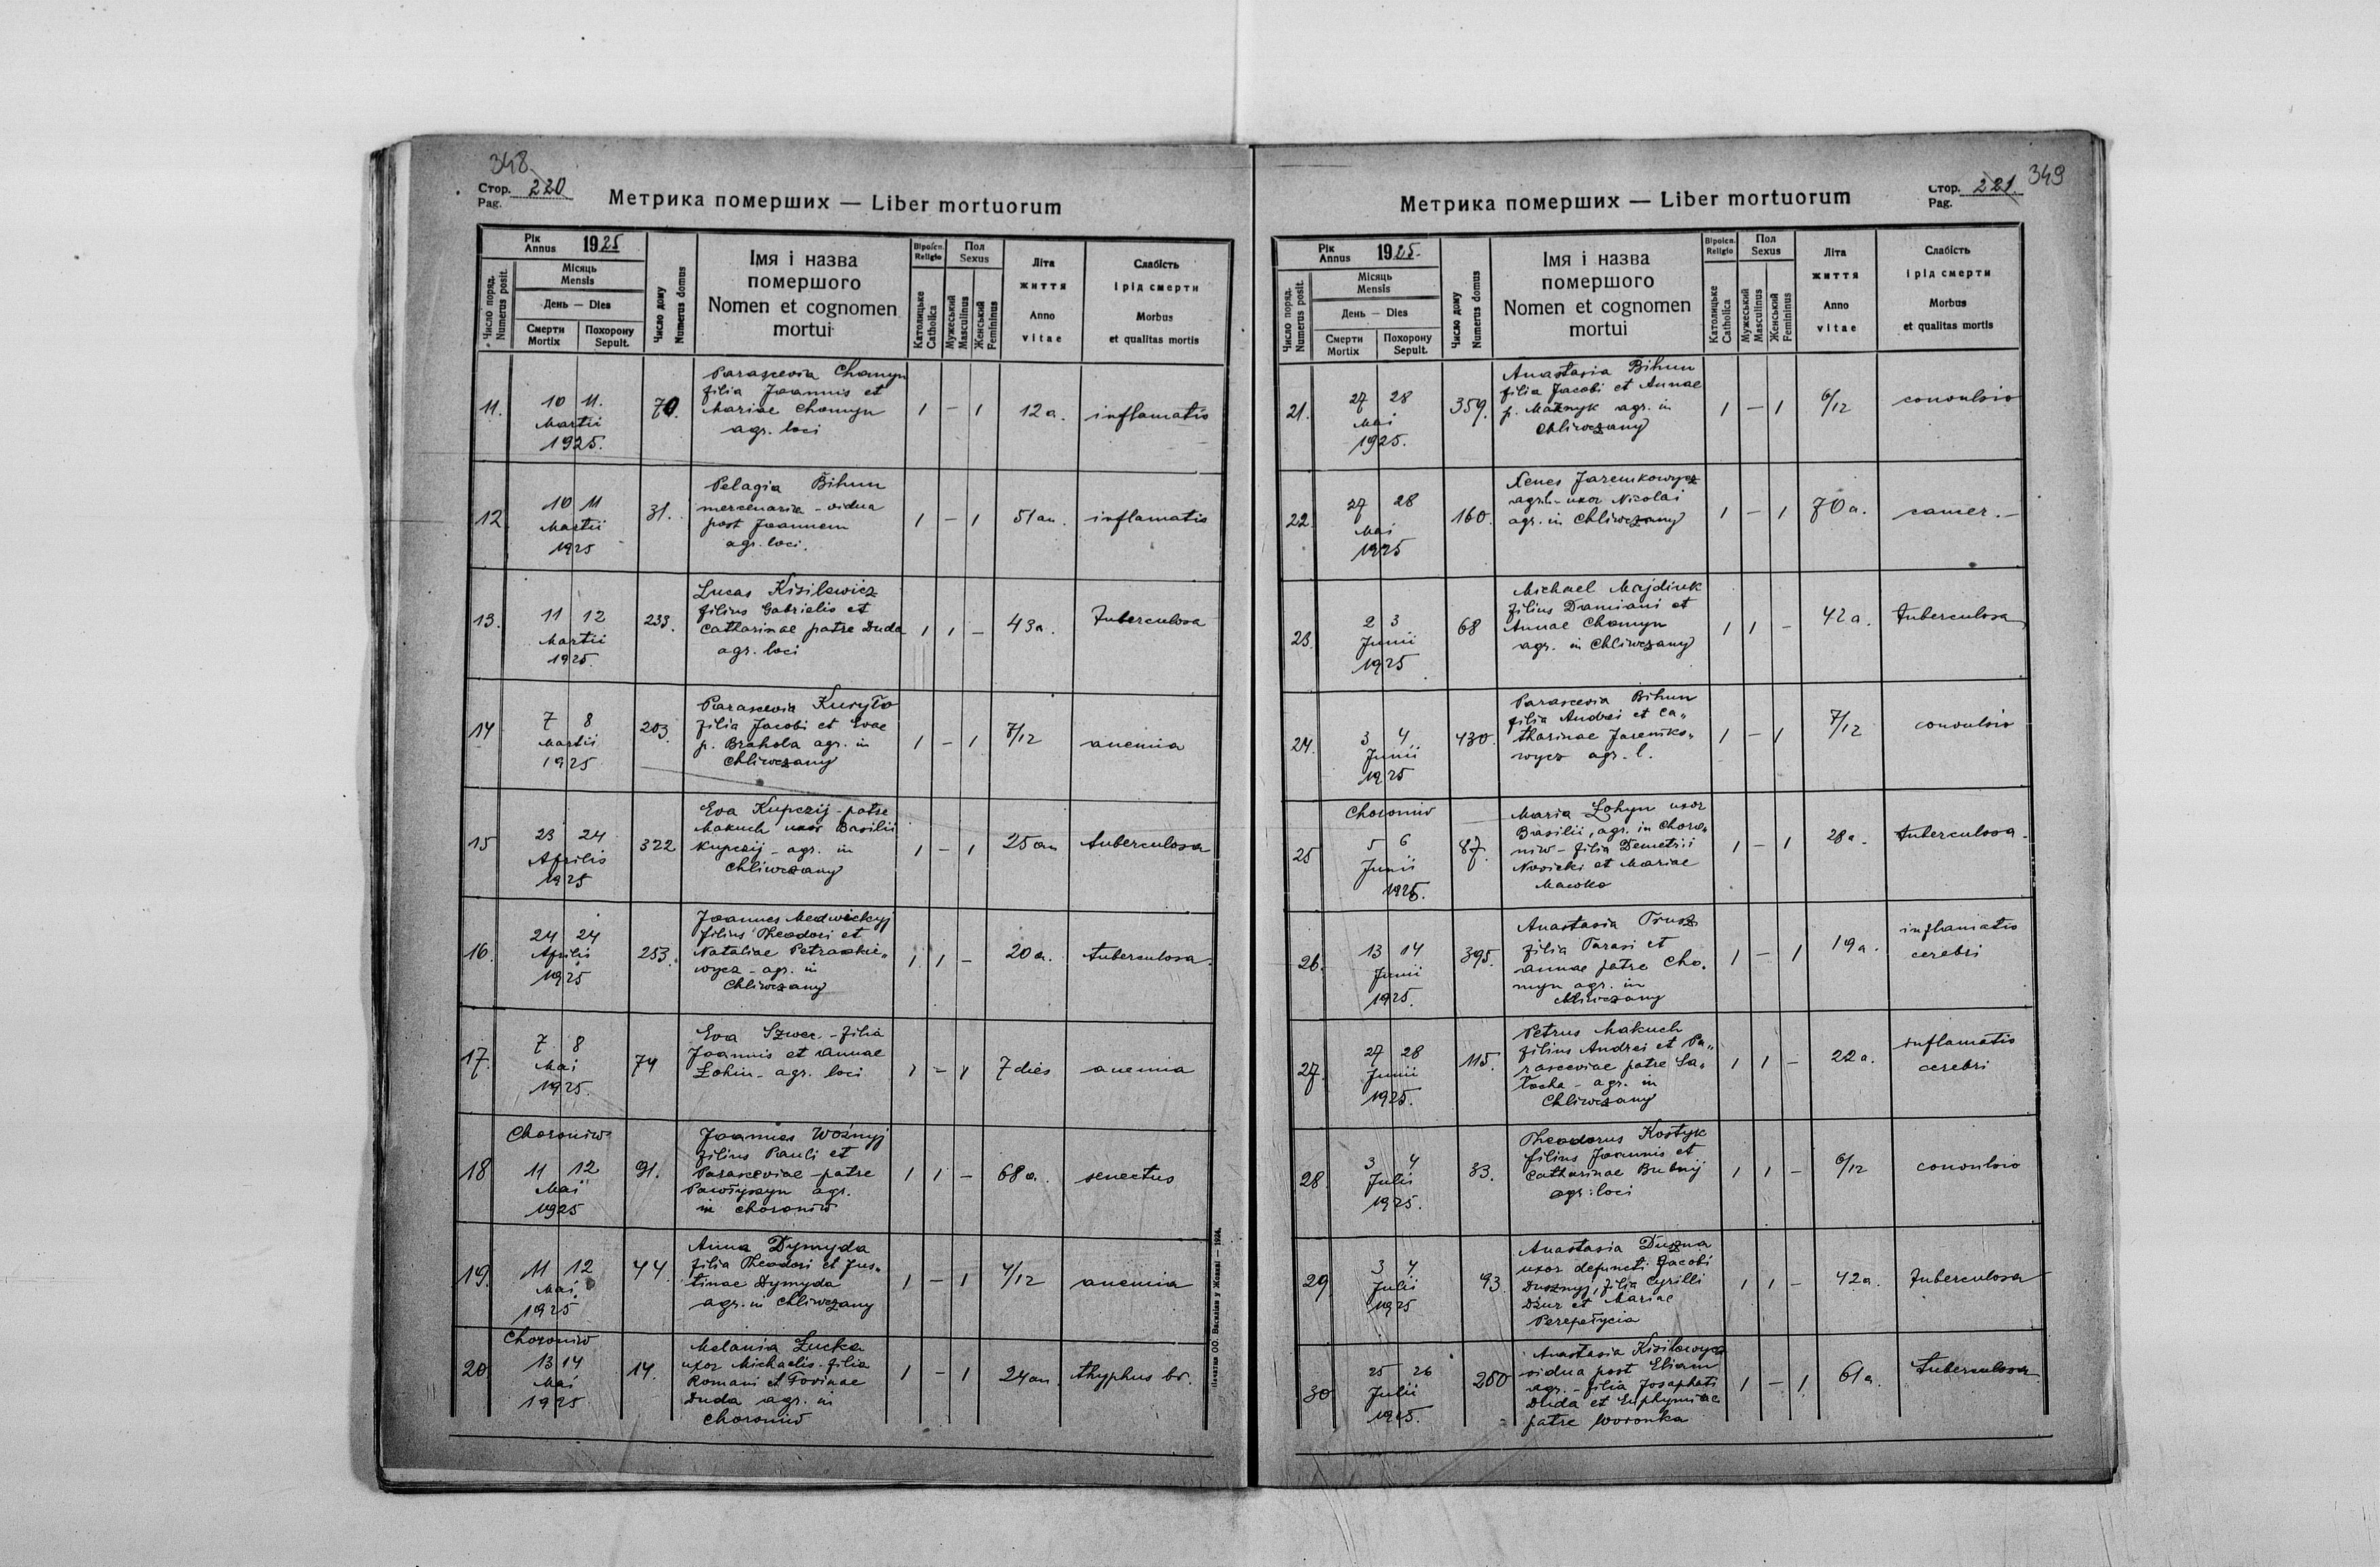 348
Стор. 220
Pag.
Метрика померших — Liber mortuorum
Рік
Annus 1925
Місяць
Mensis
День — Dies
Смерти Похорону
Mortix Sepult.
Число поряд.
Numerus posit.
Число дому
Numerus domus
Імя і назва
помершого
Nomen et cognomen
mortui
Віроісп.
Religio
Католицьке
Catholica
Пол
Sexus
Мужеський
Masculinus
Женський
Femininus
Літа
життя
Anno
vitae
Слабість
і рід смерти
Morbus
et qualitas mortis
11. 10 11. Martii 1925. 70. 1 – 1 12 a. inflamatio
Parascevia Chomyn
filia Joannis et
Mariae Chomyn
agr. loci
12 10 11 Martii 1925 31. 1 – 1 51 an. inflamatio
Pelagia Bihun
mercenaria – vidua
post Joannem
agr. loci.
13. 11 12 Martii 1925. 233. 1 1 – 43 a. tuberculosa
Lucas Kisilewicz
filius Gabrielis et
Catharinae patre Duda
agr. loci
14 7 8 Martii 1925 203. 1 – 1 7/12 anemia
Parascevia Kuryło
filia Jacobi et Evae
p. Brahola agr. in
Chliwczany
15 23 24 Aprilis 1925 322 1 – 1 25 an tuberculosa
Eva Kupczij – patre
Makuch uxor Basilii
Kupczij – agr. in
Chliwczany
16. 24 24 Aprilis 1925 253. 1 1 – 20 a. tuberculosa.
Joannes Medwickyj
filius Theodori et
Nataliae Petraszke„
wycz – agr. in
Chliwczany
17. 7 8 Mai 1925. 74 1 – 1 7 dies anemia
Eva Szwec – filia
Joannis et Annae
Łohin – agr. loci
18 Choroniw 11 12 Mai 1925 91. 1 1 – 68 a. senectus
Joannes Woźnyj
filius Pauli et
Parasceviae – patre
Pawłyszyn agr.
in Choroniw
19. 11 12 Mai 1925 44. 1 – 1 4/12 anemia
Anna Dymyda
filia Theodori et Jus„
tinae Dymyda
agr. in Chliwczany
20. Choroniw 13 14 Mai 1925 14. 1 – 1 24 an. thyphus br.
Melania Łucka
uxor Michaelis – filia
Romani et
Duda agr. in
Choroniw
Печатня ОО. Василіян у Жовкві — 1924.
349
Стор. 221.
Pag.
Метрика померших — Liber mortuorum
Рік
Annus 1925.
Місяць
Mensis
День — Dies
Смерти Похорону
Mortix Sepult.
Число поряд.
Numerus posit.
Число дому
Numerus domus
Імя і назва
помершого
Nomen et cognomen
mortui
Віроісп.
Religio
Католицьке
Catholica
Пол
Sexus
Мужеський
Masculinus
Женський
Femininus
Літа
життя
Anno
vitae
Слабість
і рід смерти
Morbus
et qualitas mortis
21. 27 28 Mai 1925. 359. 1 – 1 6/12 convulsio
Anastasia Bihun
filia Jacobi et Annae
p. agr. in
Chliwczany
22. 27 28 Mai 1925 160. 1 – 1 70 a. cancer. –
Xenes Jaremkowycz
agr. l. – uxor Nicolai
agr. in Chliwczany
23. 2 3 Junii 1925 68 1 1 – 42 a. tuberculosa
Michael Majdiuk
filius Damiani et
Annae Chomyn
agr. in Chliwczany
24. 3 4 Junii 1925 430. 1 – 1 7/12 convulsio
Parascevia Bihun
filia Andrei et Ca„
tharinae Jaremko„
wycz agr. l.
25 Choroniw 5 6 Junii 1925. 87. 1 – 1 28 a. tuberculosa.
Maria Łohyn uxor
Basilii, agr. in Choro„
niw – filia Demetrii
Nowicki et Mariae
Macko
26. 13 14 Junii 1925. 395. 1 – 1 19 a. inflamatio
cerebri
Anastasia Trusz
filia Tarasi et
Annae patre Cho„
myn agr. in
Chliwczany
27. 27 28 Junii 1925. 115. 1 1 – 22 a. inflamatio
cerebri
Petrus Makuch
filius Andrei et Pa„
rasceviae patre Sa„
łocha – agr. in
Chliwczany
28 3 4 Julii 1925. 33. 1 1 – 6/12 convulsio
Theodorus Kostyk
filius Joannis et
Catharinae Bubnij
agr. loci
29 3 4 Julii 1925 93. 1 1 – 42 a. tuberculosa
Anastasia Duszna
uxor defuncti Jacobi
Dusznyj, filia Cyrilli
Dżur et Mariae
Perepełycia
30 25 26 Julii 1925. 260 1 – 1 61 a. tuberculosa
Anastasia Kisilewycz
vidua post Eliam
agr. – filia Josaphati
Duda et Euphymiae
patre Woronka